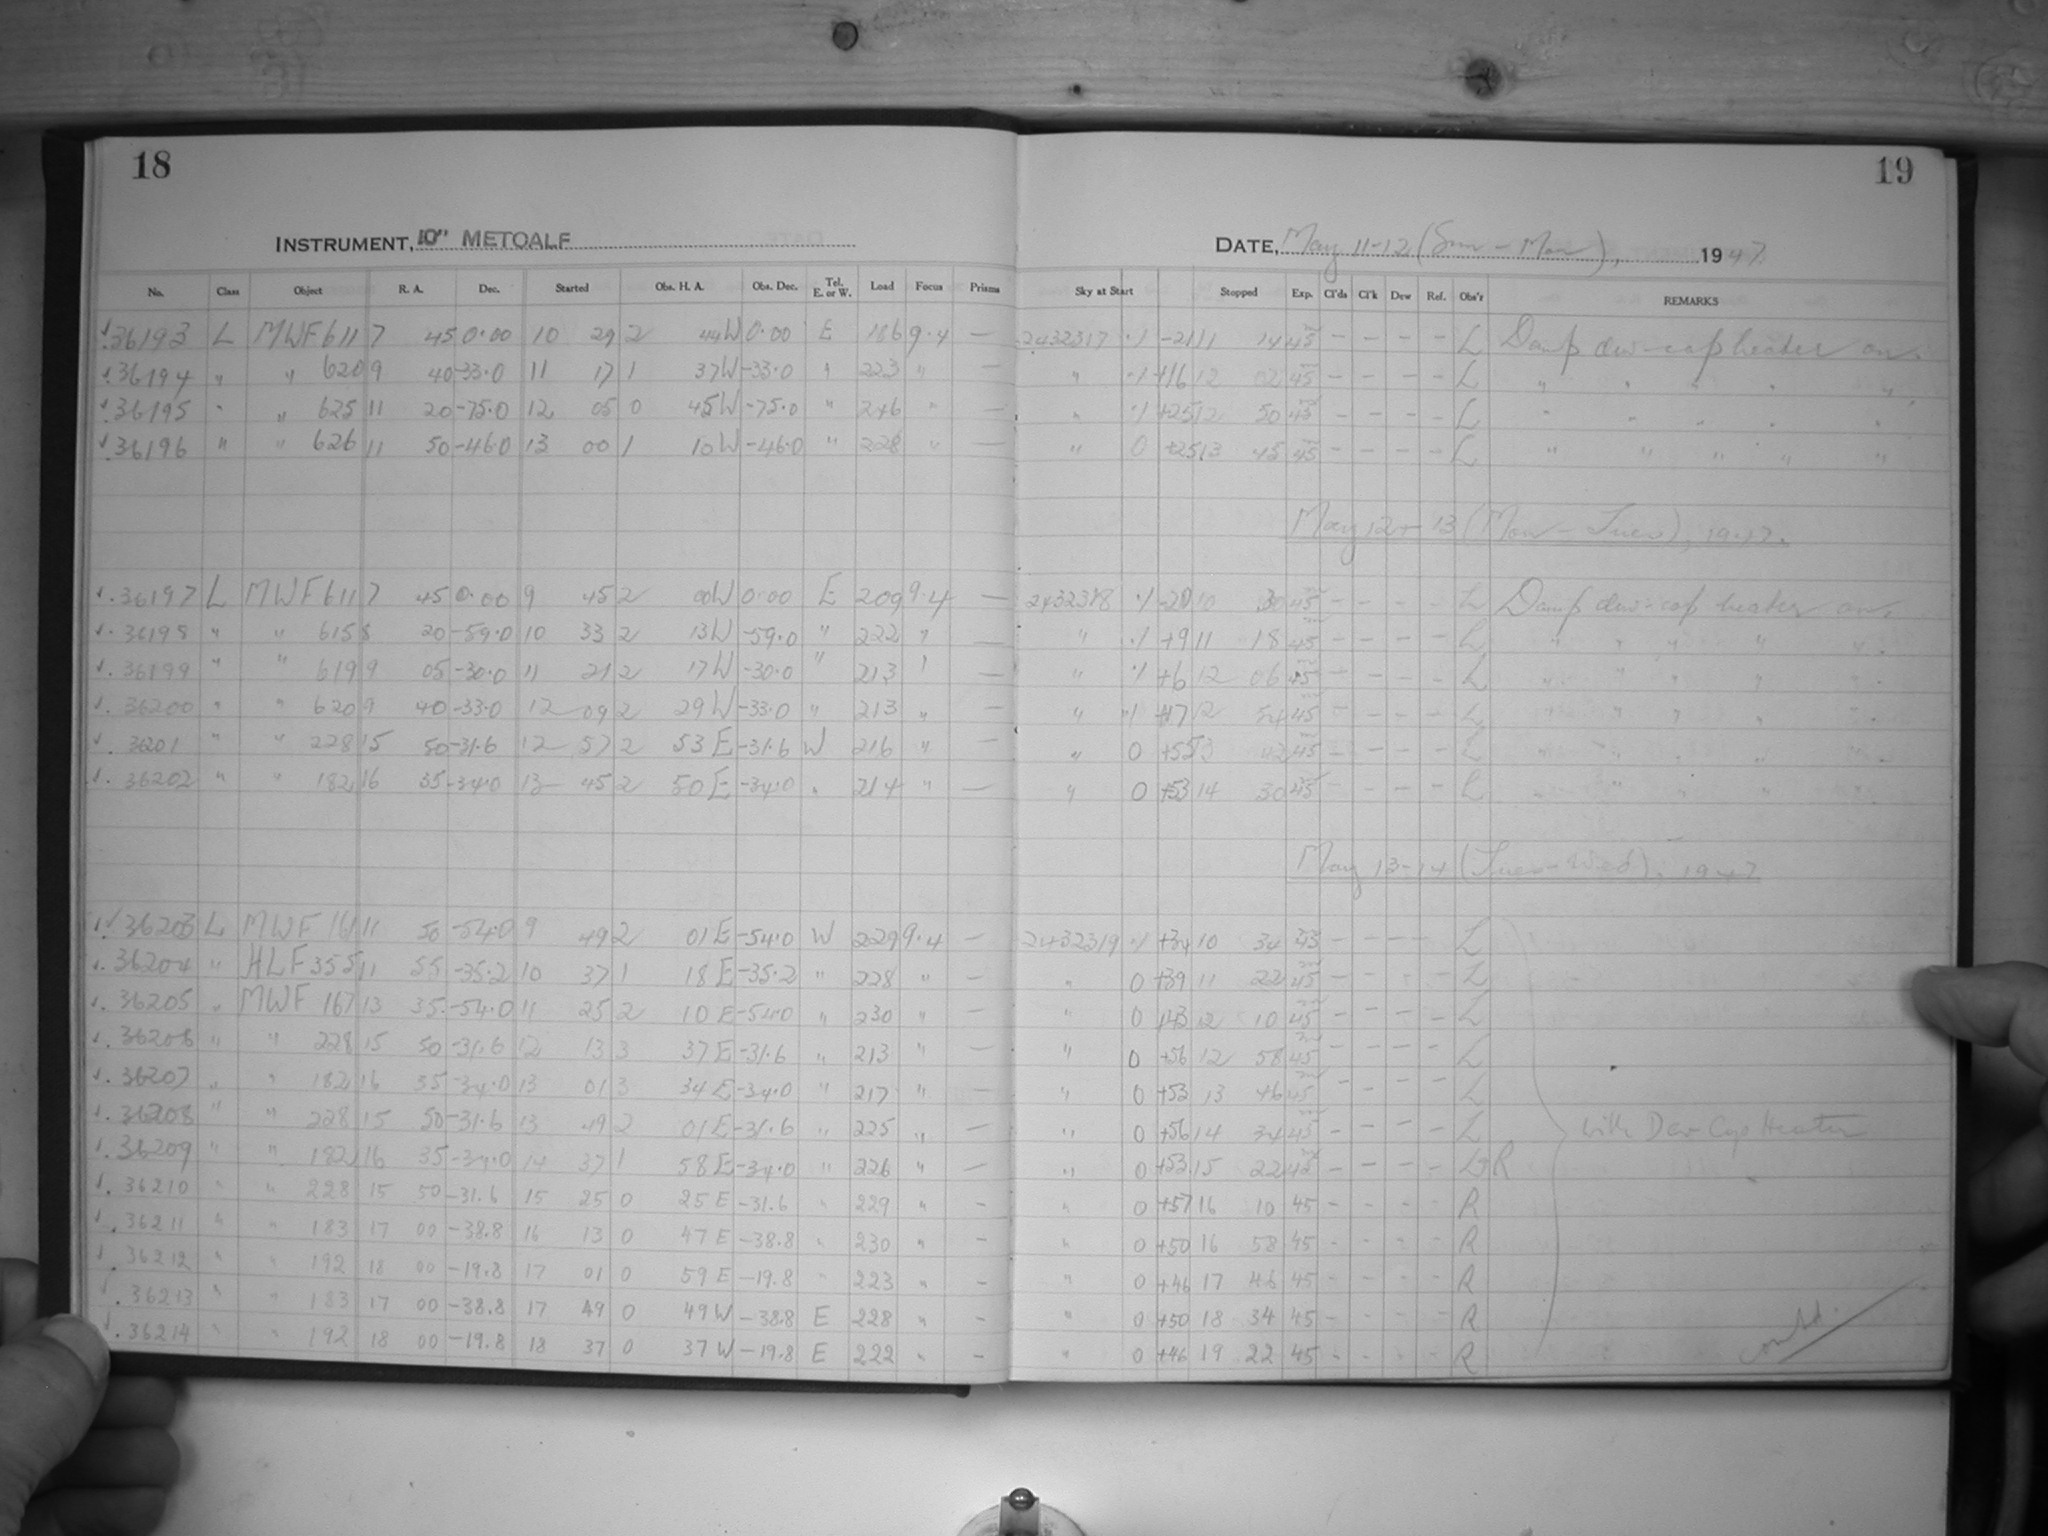 18
INSTRUMENT, 10" METCALF
No. Class Object R. A. Dec. Started Obs. H. A. Obs. Dec. Tel. E. or W. Load Focus Prisms
36193 L MWF 611 7 45 0.00 10 29 2 44W 0.00 E 186 9.4 —
36194 " " 620 9 40 -33.0 11 17 1 37W -33.0 " 223 " —
36195 " " 625 11 20 -75.0 12 05 0 45W -75.0 " 246 " —
36196 " " 626 11 50 -46.0 13 00 1 10W -46.0 " 228 " —
36197 L MWF 611 7 45 0.00 9 45 2 00W 0.00 E 209 9.4 —
36198 " " 615 8 20 -59.0 10 33 2 13W -59.0 " 222 " —
36199 " " 619 9 05 -30.0 11 21 2 17W -30.0 " 213 " —
36200 " " 620 9 40 -33.0 12 09 2 29W -33.0 " 213 " —
36201 " " 228 15 50 -31.6 12 57 2 53E -31.6 W 216 " —
36202 " " 182 16 35 -34.0 13 45 2 50E -34.0 " 214 " —
36203 L MWF 161 11 50 -54.0 9 49 2 01E -54.0 W 229 9.4 —
36204 " HLF 355 11 55 -35.2 10 37 1 18E -35.2 " 228 " —
36205 " MWF 167 13 35 -54.0 11 25 2 10E -54.0 " 230 " —
36206 " " 228 15 50 -31.6 12 13 3 37E -31.6 " 213 " —
36207 " " 182 16 35 -34.0 13 01 3 34E -34.0 " 217 " —
36208 " " 228 15 50 -31.6 13 49 2 01E -31.6 " 225 " —
36209 " " 182 16 35 -34.0 14 37 1 58E -34.0 " 226 " —
36210 " " 228 15 50 -31.6 15 25 0 25E -31.6 " 229 " —
36211 " " 183 17 00 -38.8 16 13 0 47E -38.8 " 230 " —
36212 " " 192 18 00 -19.8 17 01 0 59E -19.8 " 223 " —
36213 " " 183 17 00 -38.8 17 49 0 49W -38.8 E 228 " —
36214 " " 192 18 00 -19.8 18 37 0 37W -19.8 E 222 " —
19
DATE, May 11-12 (Sun - Mon), 1947.
Sky at Start Stopped Exp. Cl'ds Cl'k Dew Ref. Obs'r REMARKS
2432317 .1 -21 11 14 45 - - - - L Damp dew-cap heater on.
" .1 +16 12 02 45 - - - - L " " " " "
" .1 +25 12 50 45 - - - - L " " " " "
" 0 +25 13 45 45 - - - - L " " " " "
May 12-13 (Mon - Tues), 1947.
2432318 .1 -20 10 30 45 - - - - L Damp dew-cap heater on.
" .1 +9 11 18 45 - - - - L " " " " "
" .1 +6 12 06 45 - - - - L " " " " "
" .1 +17 12 54 45 - - - - L " " " " "
" 0 +55 13 42 45 - - - - L " " " " "
" 0 +53 14 30 45 - - - - L " " " " "
May 13-14 (Tues - Wed), 1947
2432319 .1 +34 10 34 45 - - - - L
" 0 +39 11 22 45 - - - - L
" 0 +43 12 10 45 - - - - L
" 0 +56 12 58 45 - - - - L
" 0 +52 13 46 45 - - - - L
" 0 +56 14 34 45 - - - - L with Dew Cap Heater
" 0 +53 15 22 45 - - - - L+R
" 0 +57 16 10 45 - - - - R
" 0 +50 16 58 45 - - - - R
" 0 +46 17 46 45 - - - - R
" 0 +50 18 34 45 - - - - R
" 0 +46 19 22 45 - - - - R
contd.